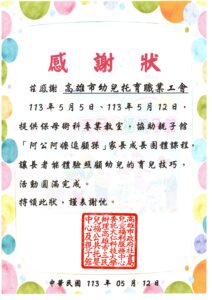 感謝狀
茲感謝 高雄市幼兒托育職業工會
113年5月5日、113年5月12日，
提供保母術科專業教室，協助親子館
「阿公阿嬤追顧孫」家長成長團體課程，
讓長者能體驗照顧幼兒的育兒技巧，
活動圓滿完成。
特頒此狀，謹表謝忱。
中華民國 113 年 05 月 12 日